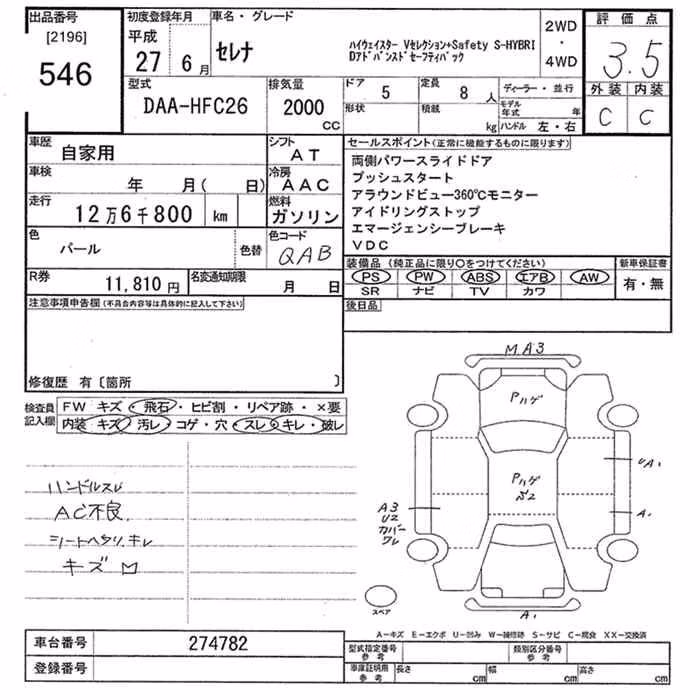 出品番号
[2196]
546
初度登録年月
平成
27年 6月
車名・グレード
セレナ
ハイウェイスター Vセレクション+Safety S-HYBRI
Dアドバンスドセーフティパック
2WD
・
4WD
評価点
3.5
外装 内装
C C
型式
DAA-HFC26
排気量
2000
CC
ドア 5
定員 8 人
形状
積載 kg
ディーラー・並行
モデル年式 年
ハンドル 左・右
車歴 自家用
シフト AT
車検 年 月( 日)
冷房 AAC
走行 12万6千800 km
燃料 ガソリン
色 パール
色替
色コード QAB
R券 11,810円
名変通知期限 月 日
セールスポイント(正常に機能するものに限ります)
両側パワースライドドア
プッシュスタート
アラウンドビュー360℃モニター
アイドリングストップ
エマージェンシーブレーキ
VDC
装備品 (純正品に限り○をつけてください)
PS PW ABS エアB AW
SR ナビ TV カワ
新車保証書
有・無
後日品
注意事項申告欄(不具合内容等は具体的に記入して下さい)
修復歴 有〔箇所 〕
検査員記入欄
FW キズ・飛石・ヒビ割・リペア跡・×要
内装 キズ・汚レ・コゲ・穴・スレ・キレ・破レ
ハンドルスレ
AC不良
シートヘタリ、キレ
キズ
M.A3
Pハゲ
Pハゲ
A3
U2
カバー
ワレ
UA1
A1
A1
スペア
A−キズ E−エクボ U−凹み W−補修跡 S−サビ C−腐食 XX−交換済
車台番号 274782
登録番号
型式指定番号
参考
類別区分番号
参考
車庫証明用
参考
長さ cm 幅 cm 高さ cm